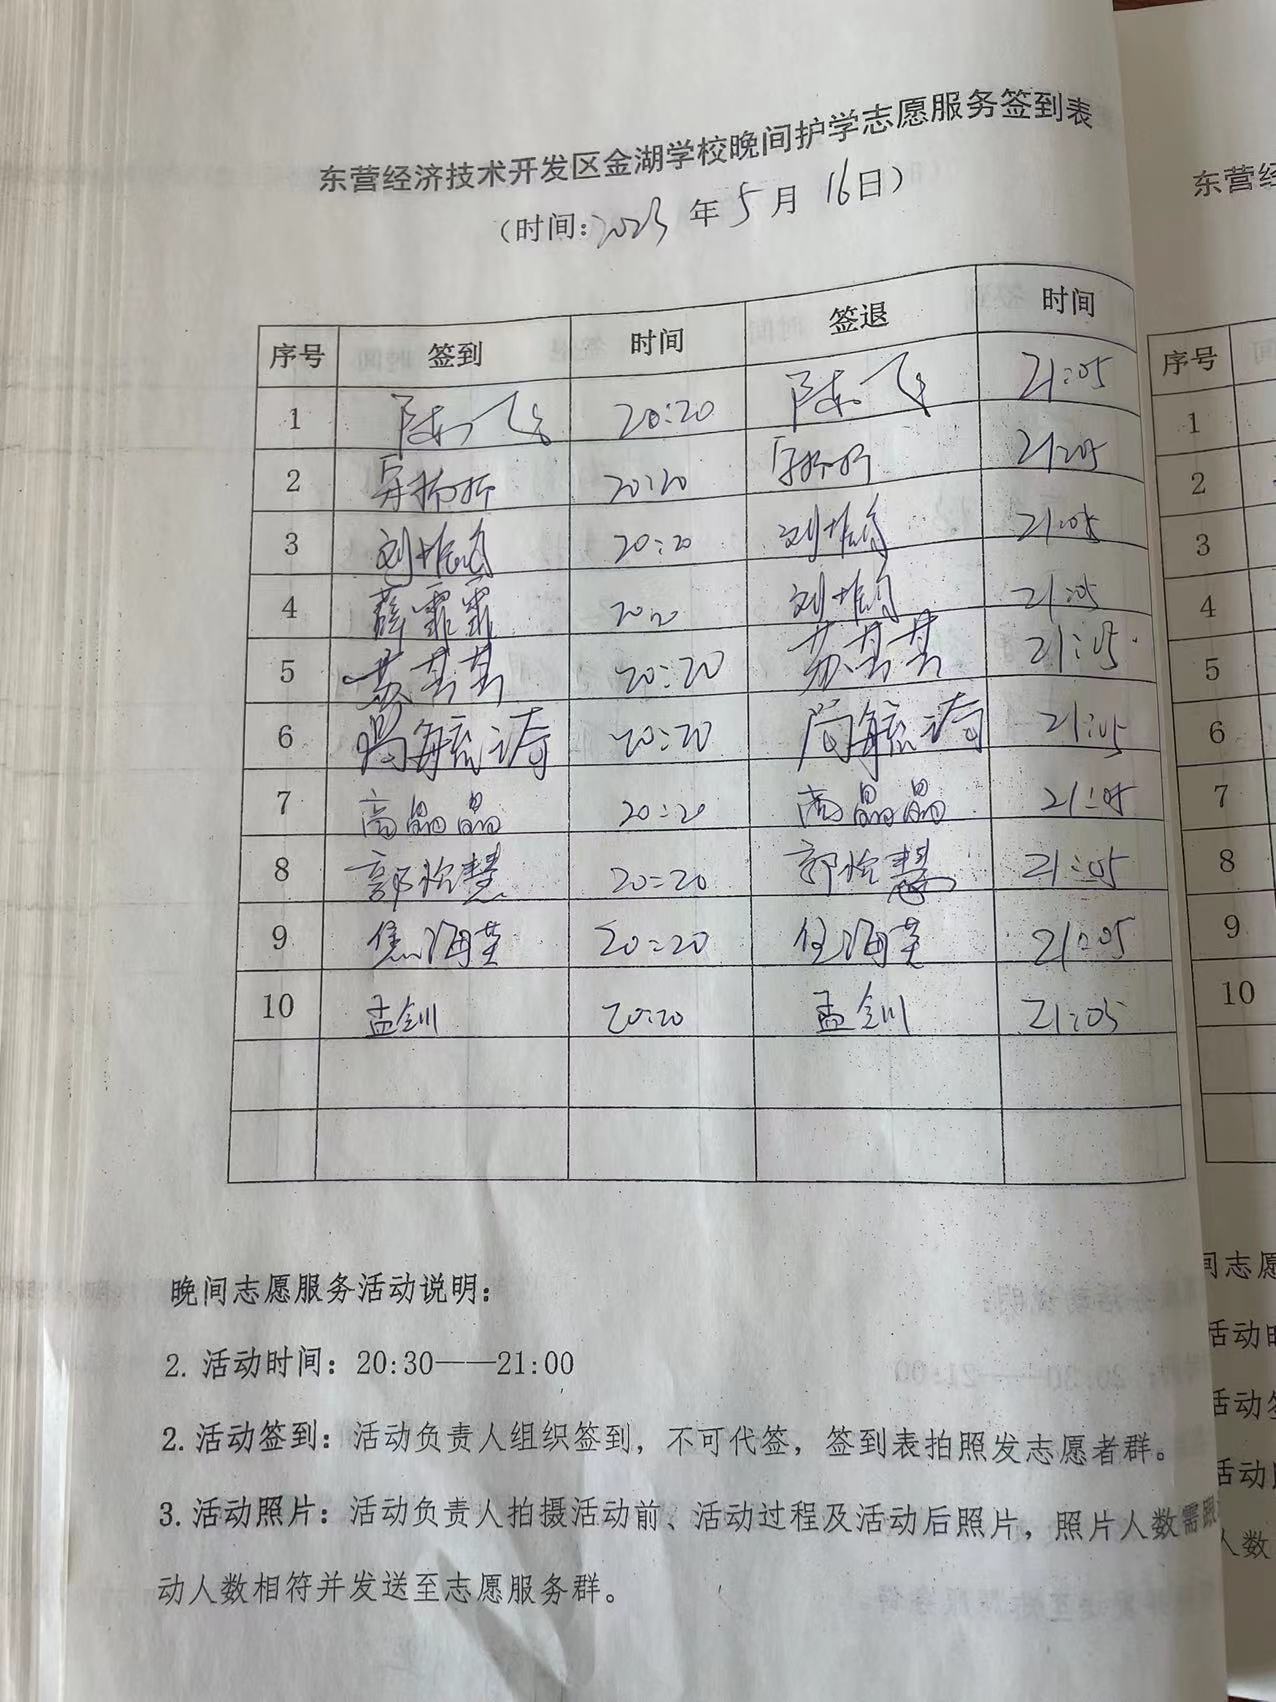 东营经济技术开发区金湖学校晚间护学志愿服务签到表
（时间:2023年5月16日）
序号 签到 时间 签退 时间
1 陈飞 20:20 陈飞 21:05
2 20:20 21:05
3 刘 20:20 刘 21:05
4 薛霏霏 20:20 刘 21:05
5 苏芸芸 20:20 苏芸芸 21:05
6 尚毓涛 20:20 尚毓涛 21:05
7 高晶晶 20:20 高晶晶 21:05
8 郭怡慧 20:20 郭怡慧 21:05
9 焦海英 20:20 海英 21:05
10 孟钏 20:20 孟钏 21:05
晚间志愿服务活动说明：
2. 活动时间：20:30——21:00
2. 活动签到：活动负责人组织签到，不可代签，签到表拍照发志愿者群。
3. 活动照片：活动负责人拍摄活动前、活动过程及活动后照片，照片人数需跟
动人数相符并发送至志愿服务群。
东营经
序号
1
2
3
4
5
6
7
8
9
10
间志愿
活动时
活动签
活动
人数